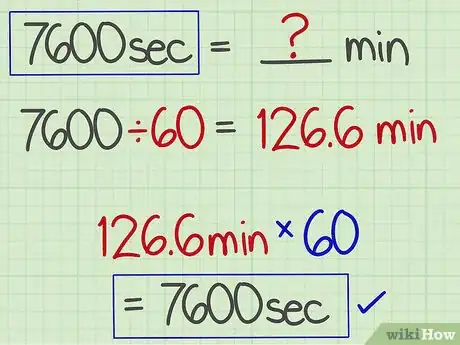 7600sec = ? min
7600 ÷ 60 = 126.6 min
126.6min × 60
= 7600sec ✓
wikiHow